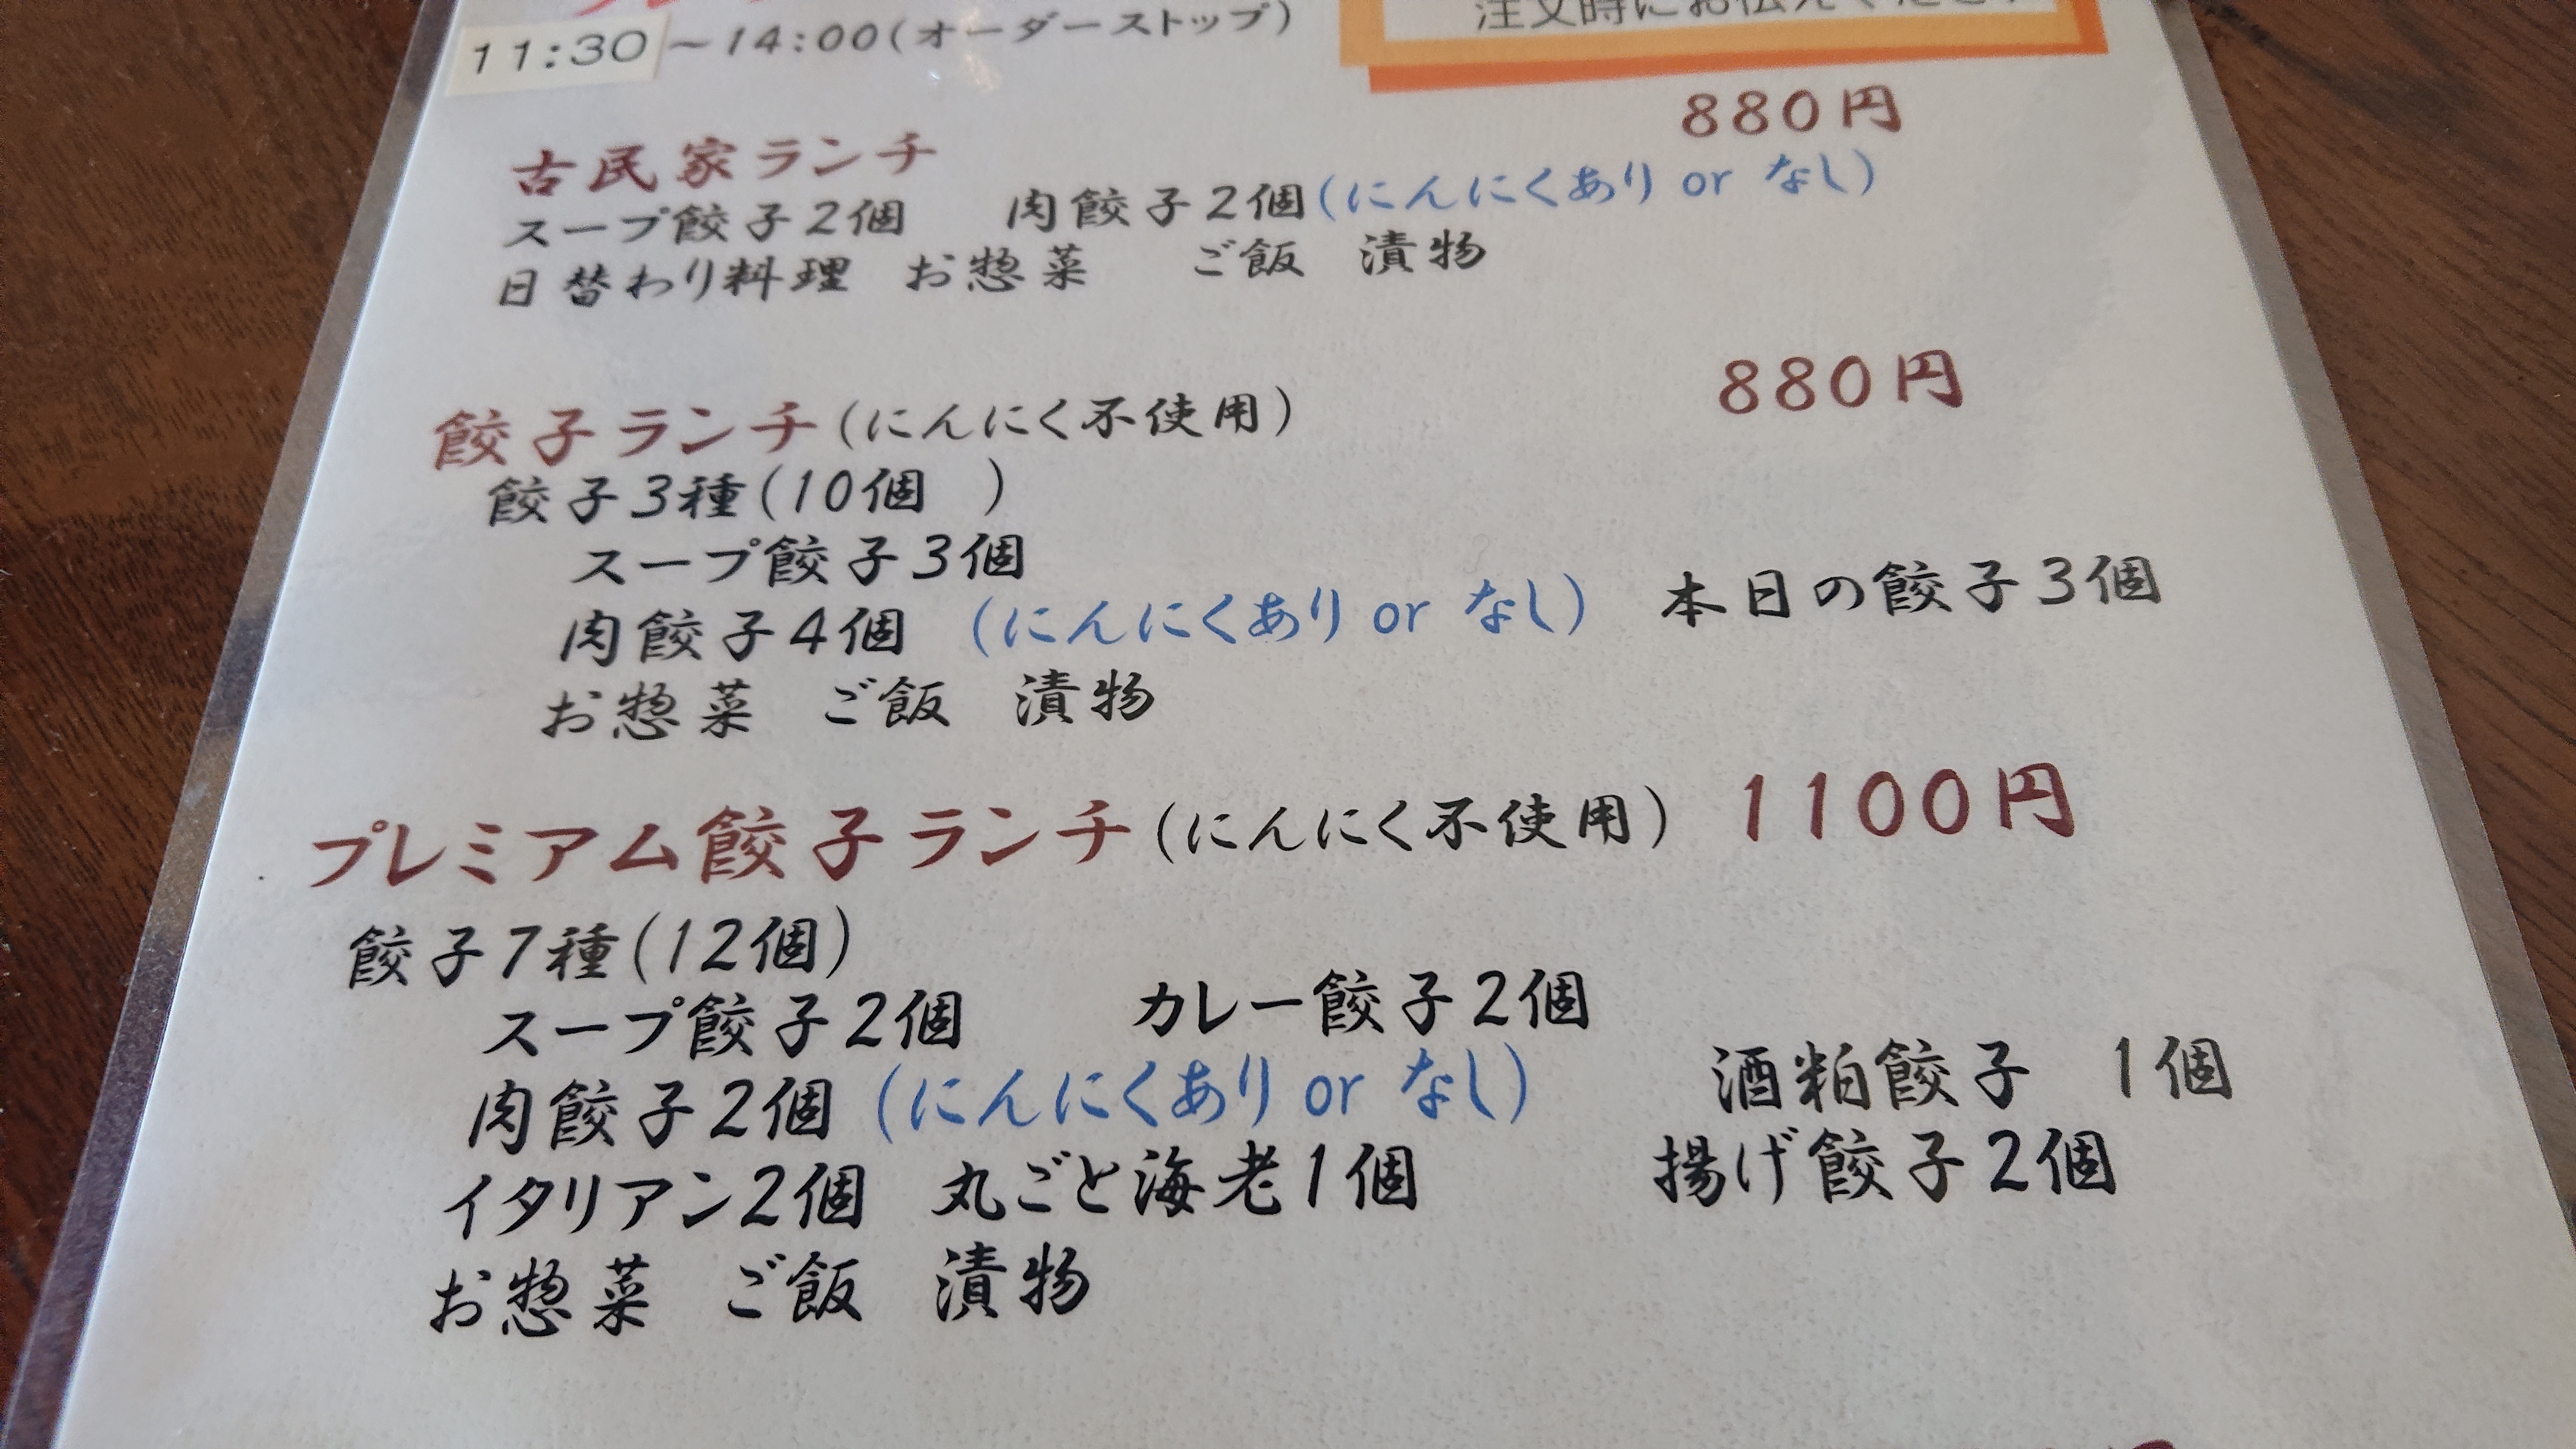 注文時にお伝えください
11:30～14:00(オーダーストップ)
880円
古民家ランチ
スープ餃子2個 肉餃子2個(にんにくあり or なし)
日替わり料理 お惣菜 ご飯 漬物
880円
餃子ランチ(にんにく不使用)
餃子3種(10個 )
スープ餃子3個
肉餃子4個 (にんにくあり or なし) 本日の餃子3個
お惣菜 ご飯 漬物
プレミアム餃子ランチ(にんにく不使用) 1100円
餃子7種(12個)
スープ餃子2個 カレー餃子2個
肉餃子2個(にんにくあり or なし) 酒粕餃子 1個
イタリアン2個 丸ごと海老1個 揚げ餃子2個
お惣菜 ご飯 漬物